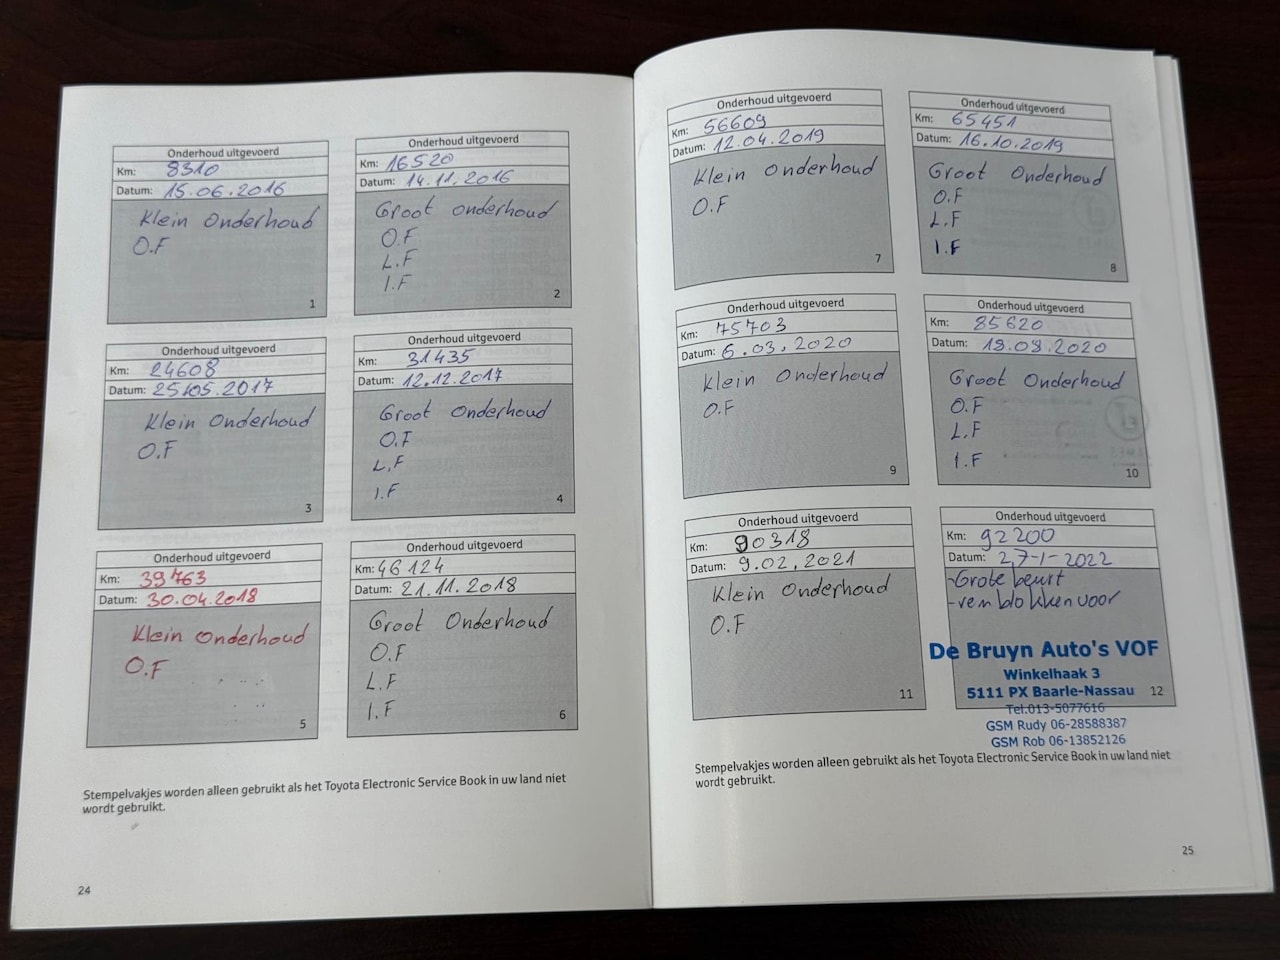 Onderhoud uitgevoerd
Km: 8310
Datum: 15.06.2016
Klein Onderhoud
O.F
1
Onderhoud uitgevoerd
Km: 16520
Datum: 14.11.2016
Groot onderhoud
O.F
L.F
I.F
2
Onderhoud uitgevoerd
Km: 24608
Datum: 25.05.2017
Klein Onderhoud
O.F
3
Onderhoud uitgevoerd
Km: 31435
Datum: 12.12.2017
Groot Onderhoud
O.F
L.F
I.F
4
Onderhoud uitgevoerd
Km: 39763
Datum: 30.04.2018
Klein Onderhoud
O.F
5
Onderhoud uitgevoerd
Km: 46124
Datum: 21.11.2018
Groot Onderhoud
O.F
L.F
I.F
6
Stempelvakjes worden alleen gebruikt als het Toyota Electronic Service Book in uw land niet
wordt gebruikt.
24
Onderhoud uitgevoerd
Km: 56609
Datum: 12.04.2019
Klein Onderhoud
O.F
7
Onderhoud uitgevoerd
Km: 65451
Datum: 16.10.2019
Groot Onderhoud
O.F
L.F
I.F
8
Onderhoud uitgevoerd
Km: 75703
Datum: 6.03.2020
Klein Onderhoud
O.F
9
Onderhoud uitgevoerd
Km: 85620
Datum: 18.08.2020
Groot Onderhoud
O.F
L.F
I.F
10
Onderhoud uitgevoerd
Km: 90318
Datum: 9.02.2021
Klein Onderhoud
O.F
11
Onderhoud uitgevoerd
Km: 92200
Datum: 27-1-2022
-Grote beurt
-remblokken voor
De Bruyn Auto's VOF
Winkelhaak 3
5111 PX Baarle-Nassau
12
Tel.013-5077616
GSM Rudy 06-28588387
GSM Rob 06-13852126
Stempelvakjes worden alleen gebruikt als het Toyota Electronic Service Book in uw land niet
wordt gebruikt.
25